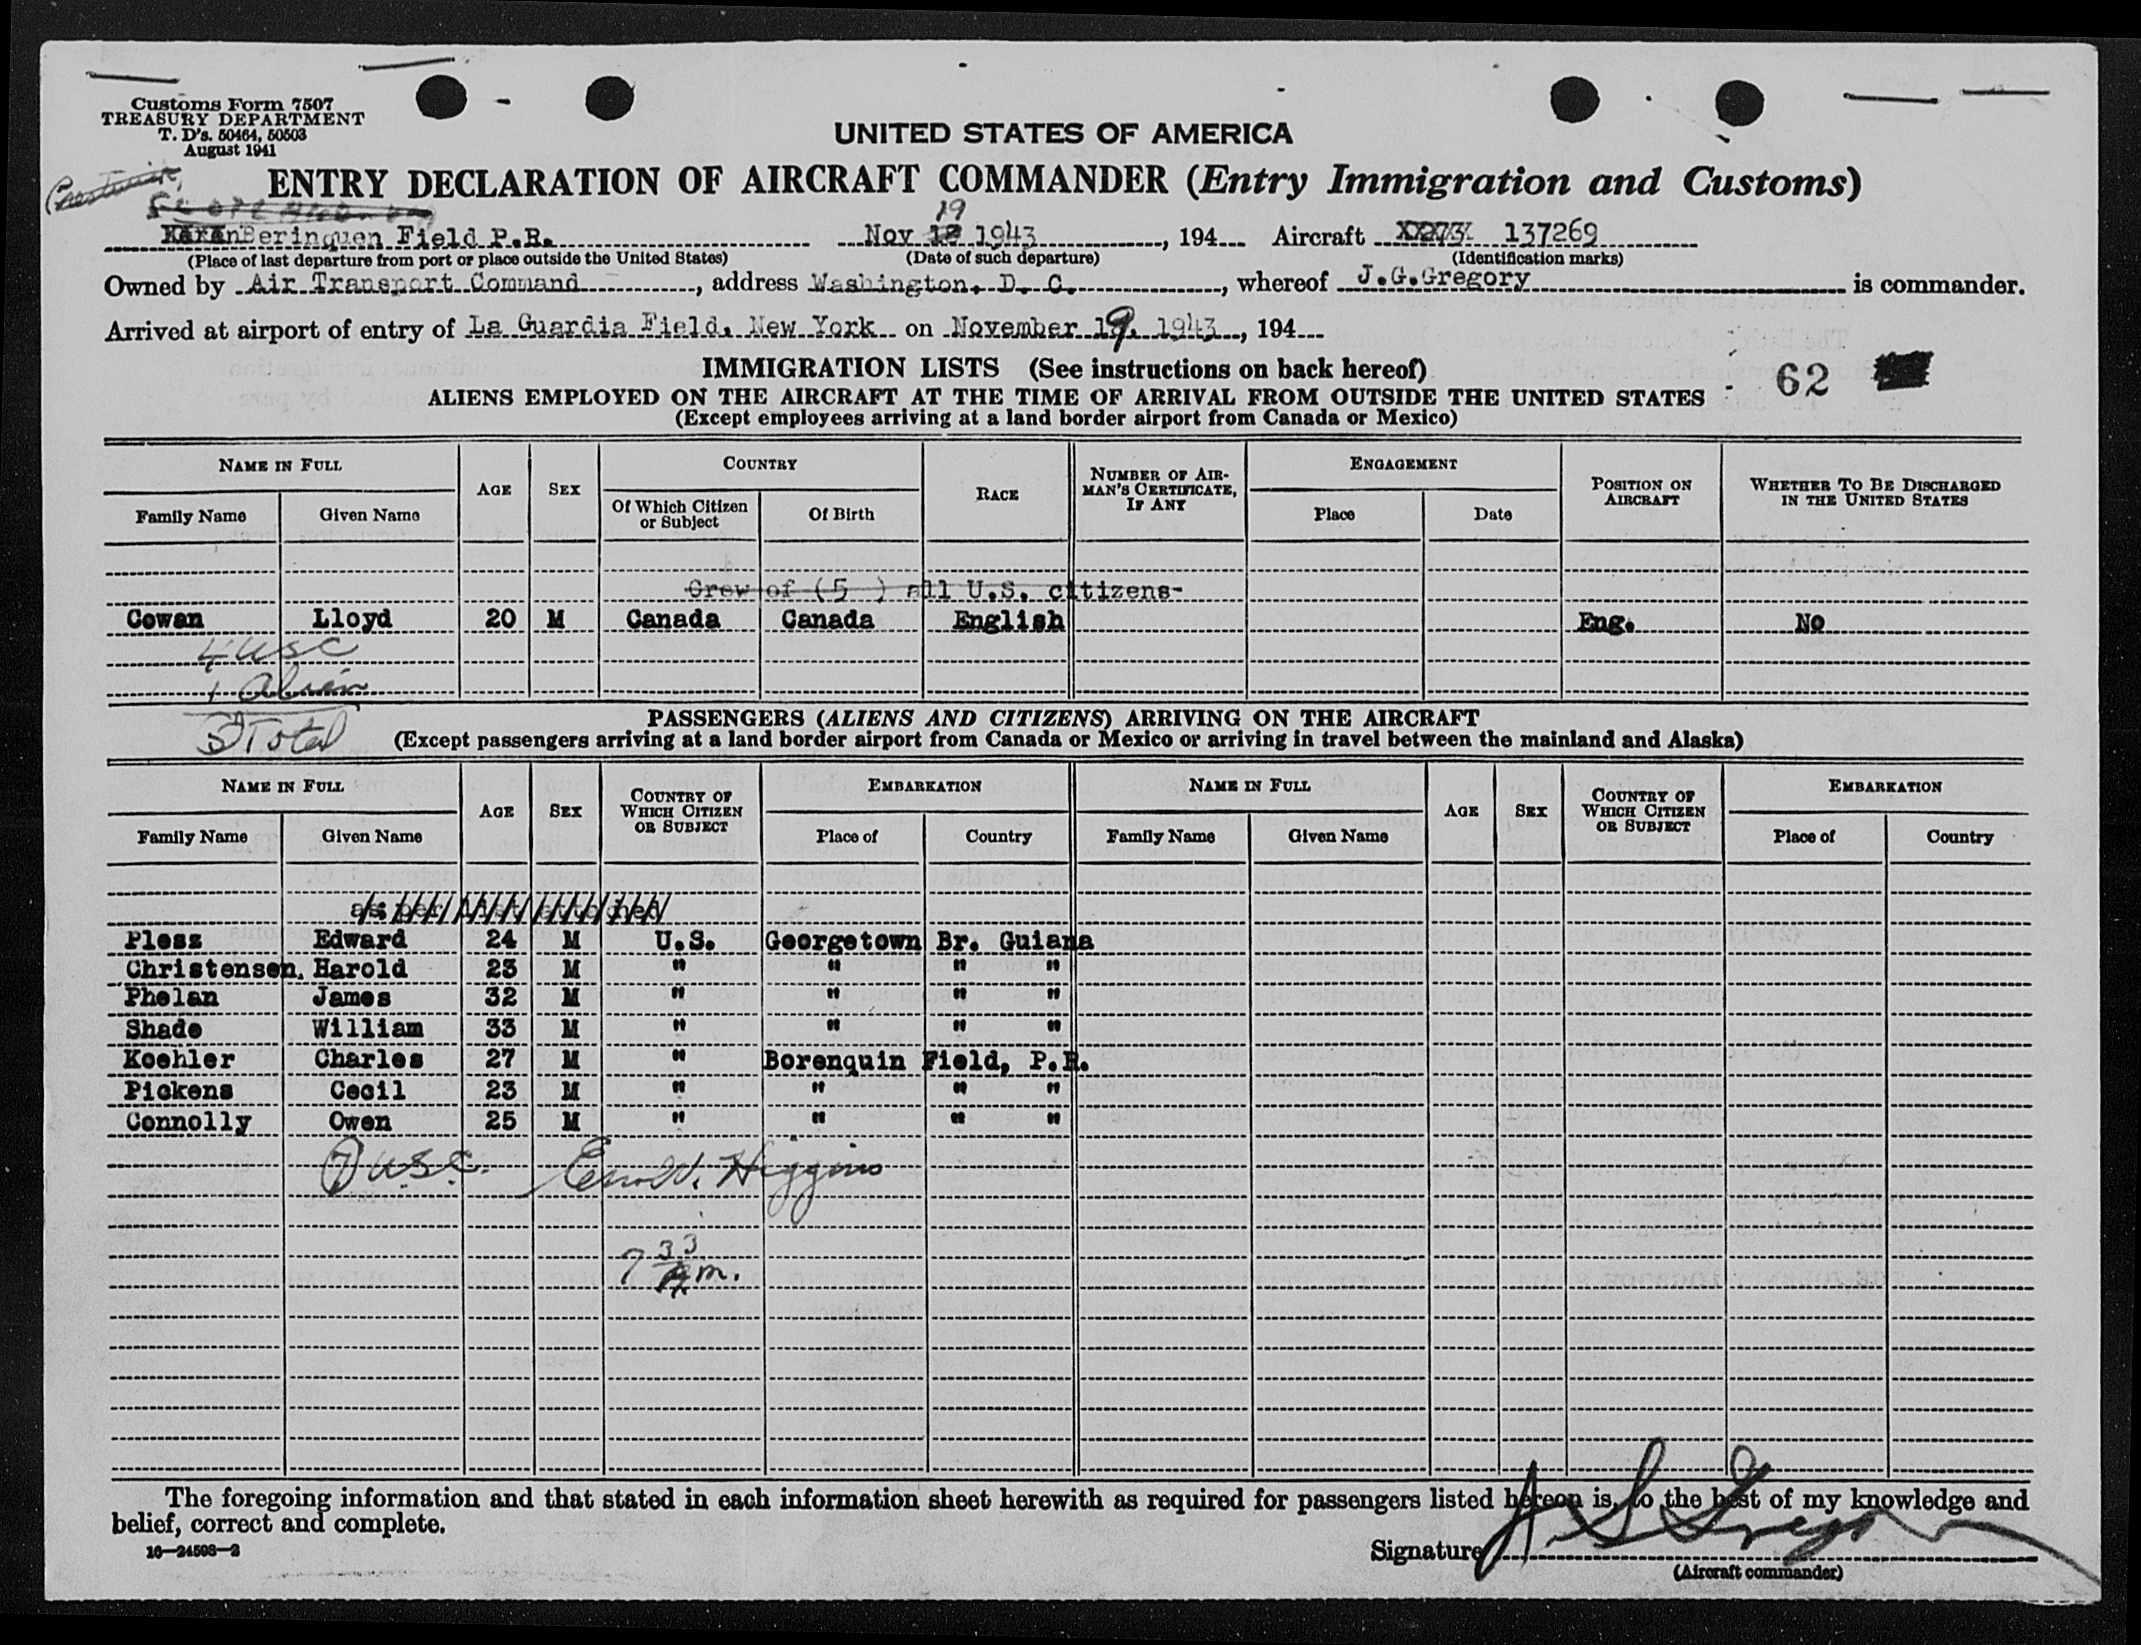 Customs Form 7507
TREASURY DEPARTMENT
T. D's. 50464, 50503
August 1941
UNITED STATES OF AMERICA
ENTRY DECLARATION OF AIRCRAFT COMMANDER (Entry Immigration and Customs)
Berinquen Field P.R. Nov 19 1943, 194 Aircraft 137269
(Place of last departure from port or place outside the United States) (Date of such departure) (Identification marks)
Owned by Air Transport Command, address Washington, D. C., whereof J.G.Gregory is commander.
Arrived at airport of entry of La Guardia Field, New York on November 19, 1943, 194
IMMIGRATION LISTS (See instructions on back hereof)
62
ALIENS EMPLOYED ON THE AIRCRAFT AT THE TIME OF ARRIVAL FROM OUTSIDE THE UNITED STATES
(Except employees arriving at a land border airport from Canada or Mexico)
NAME IN FULL AGE SEX COUNTRY RACE NUMBER OF AIRMAN'S CERTIFICATE, IF ANY ENGAGEMENT POSITION ON AIRCRAFT WHETHER TO BE DISCHARGED IN THE UNITED STATES
Family Name Given Name Of Which Citizen or Subject Of Birth Place Date
Crew of (5 ) all U.S. citizens-
Cowan Lloyd 20 M Canada Canada English Eng. No
4 USC
1 Alien
5 Total
PASSENGERS (ALIENS AND CITIZENS) ARRIVING ON THE AIRCRAFT
(Except passengers arriving at a land border airport from Canada or Mexico or arriving in travel between the mainland and Alaska)
NAME IN FULL AGE SEX COUNTRY OF WHICH CITIZEN OR SUBJECT EMBARKATION NAME IN FULL AGE SEX COUNTRY OF WHICH CITIZEN OR SUBJECT EMBARKATION
Family Name Given Name Place of Country Family Name Given Name Place of Country
Pless Edward 24 M U.S. Georgetown Br. Guiana
Christensen, Harold 23 M " " " "
Phelan James 32 M " " " "
Shade William 33 M " " " "
Koehler Charles 27 M " Borenquin Field, P.R.
Pickens Cecil 23 M " " " "
Connolly Owen 25 M " " " "
7 U.S.C. Higgins
7 33 m.
The foregoing information and that stated in each information sheet herewith as required for passengers listed hereon is, to the best of my knowledge and
belief, correct and complete.
16—24598-2
Signature
(Aircraft commander)